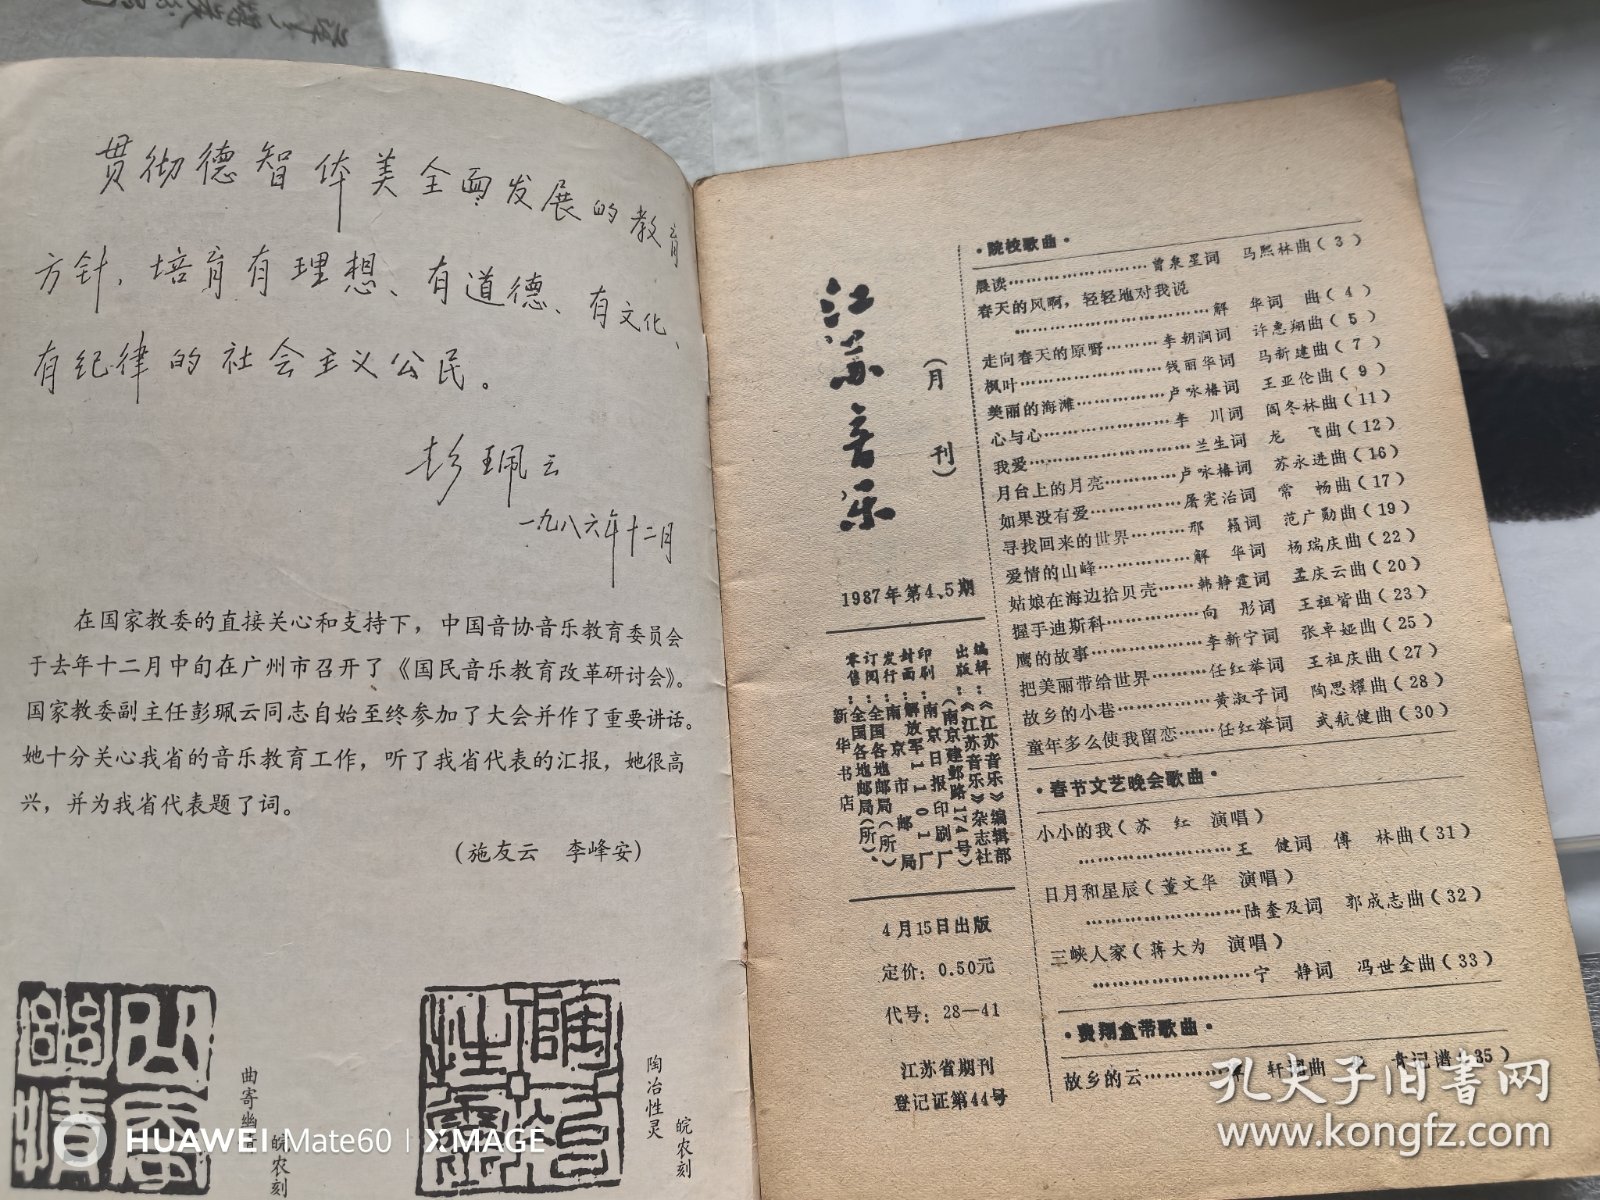 贯彻德智体美全面发展的教育
方针，培育有理想、有道德、有文化、
有纪律的社会主义公民。
彭珮云
一九八六年十二月
在国家教委的直接关心和支持下，中国音协音乐教育委员会
于去年十二月中旬在广州市召开了《国民音乐教育改革研讨会》。
国家教委副主任彭珮云同志自始至终参加了大会并作了重要讲话。
她十分关心我省的音乐教育工作，听了我省代表的汇报，她很高
兴，并为我省代表题了词。
（施友云　李峰安）
曲寄幽情
皖农刻
陶冶性灵
皖农刻
HUAWEI Mate60 | XMAGE
江苏音乐
（月刊）
1987年第4、5期
编辑：《江苏音乐》编辑部
出版：《江苏音乐》杂志社
（南京建邺路174号）
印刷：南京日报印刷厂
封面：解放军1101厂
发行：南京市邮局
订阅：全国各地邮局（所）
零售：全国各地邮局（所）、
新华书店
4月15日出版
定价：0.50元
代号：28—41
江苏省期刊
登记证第44号
·院校歌曲·
晨读……………………曾泉星词　马熙林曲（3）
春天的风啊，轻轻地对我说
……………………………解　华词　曲（4）
走向春天的原野………李朝润词　许惠翔曲（5）
枫叶……………………钱丽华词　马新建曲（7）
美丽的海滩……………卢咏椿词　王亚伦曲（9）
心与心…………………李　川词　阎冬林曲（11）
我爱……………………兰生词　龙　飞曲（12）
月台上的月亮…………卢咏椿词　苏永进曲（16）
如果没有爱……………屠宪治词　常　畅曲（17）
寻找回来的世界………邢　籁词　范广勋曲（19）
爱情的山峰……………解　华词　杨瑞庆曲（22）
姑娘在海边拾贝壳……韩静霆词　孟庆云曲（20）
握手迪斯科……………向　彤词　王祖皆曲（23）
鹰的故事………………李新宁词　张卓娅曲（25）
把美丽带给世界………任红举词　王祖庆曲（27）
故乡的小巷……………黄淑子词　陶思耀曲（28）
童年多么使我留恋……任红举词　武航健曲（30）
·春节文艺晚会歌曲·
小小的我（苏　红　演唱）
……………………王　健词　傅　林曲（31）
日月和星辰（董文华　演唱）
……………………陆奎及词　郭成志曲（32）
三峡人家（蒋大为　演唱）
……………………宁　静词　冯世全曲（33）
·费翔盒带歌曲·
故乡的云…………　轩词曲　　记谱（35）
孔夫子旧书网
www.kongfz.com